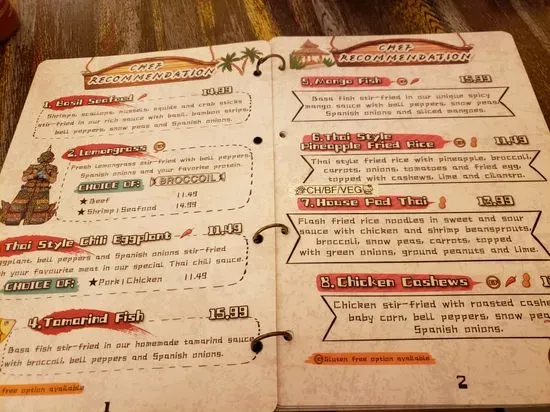 CHEF
RECOMMENDATION
1. Basil Seafood 14.99
Shrimps, scallops, mussels, squids and crab sticks
stir-fried in our rice sauce with basil, bamboo strips,
bell peppers, snow peas and Spanish onions.
2. Lemongrass
Fresh lemongrass stir-fried with bell peppers,
Spanish onions and your favourite protein.
CHOICE OF: BROCCOLI
★Beef 11.49
★Shrimp|Seafood 14.99
Thai Style Chili Eggplant 11.49
Eggplant, bell peppers and Spanish onions stir-fried
with your favourite meat in our special Thai chili sauce.
CHOICE OF: ★Pork|Chicken 11.49
4. Tamarind Fish 15.99
Basa fish stir-fried in our homemade tamarind sauce
with broccoli, bell peppers and Spanish onions.
free option available
1
CHEF
RECOMMENDATION
5. Mango Fish 15.99
Basa fish stir-fried in our unique spicy
mango sauce with bell peppers, snow peas,
Spanish onions and sliced mangoes.
6. Thai Style
Pineapple Fried Rice 11.49
Thai style fried rice with pineapple, broccoli,
carrots, onions, tomatoes and fried egg,
topped with cashews, lime and cilantro.
CH/BF/VEG
7. House Pad Thai 12.99
Flash fried rice noodles in sweet and sour
sauce with chicken and shrimp beansprouts,
broccoli, snow peas, carrots, topped
with green onions, ground peanuts and lime.
8. Chicken Cashews
Chicken stir-fried with roasted cash
baby corn, bell peppers, snow pea
Spanish onions.
Gluten free option available
2